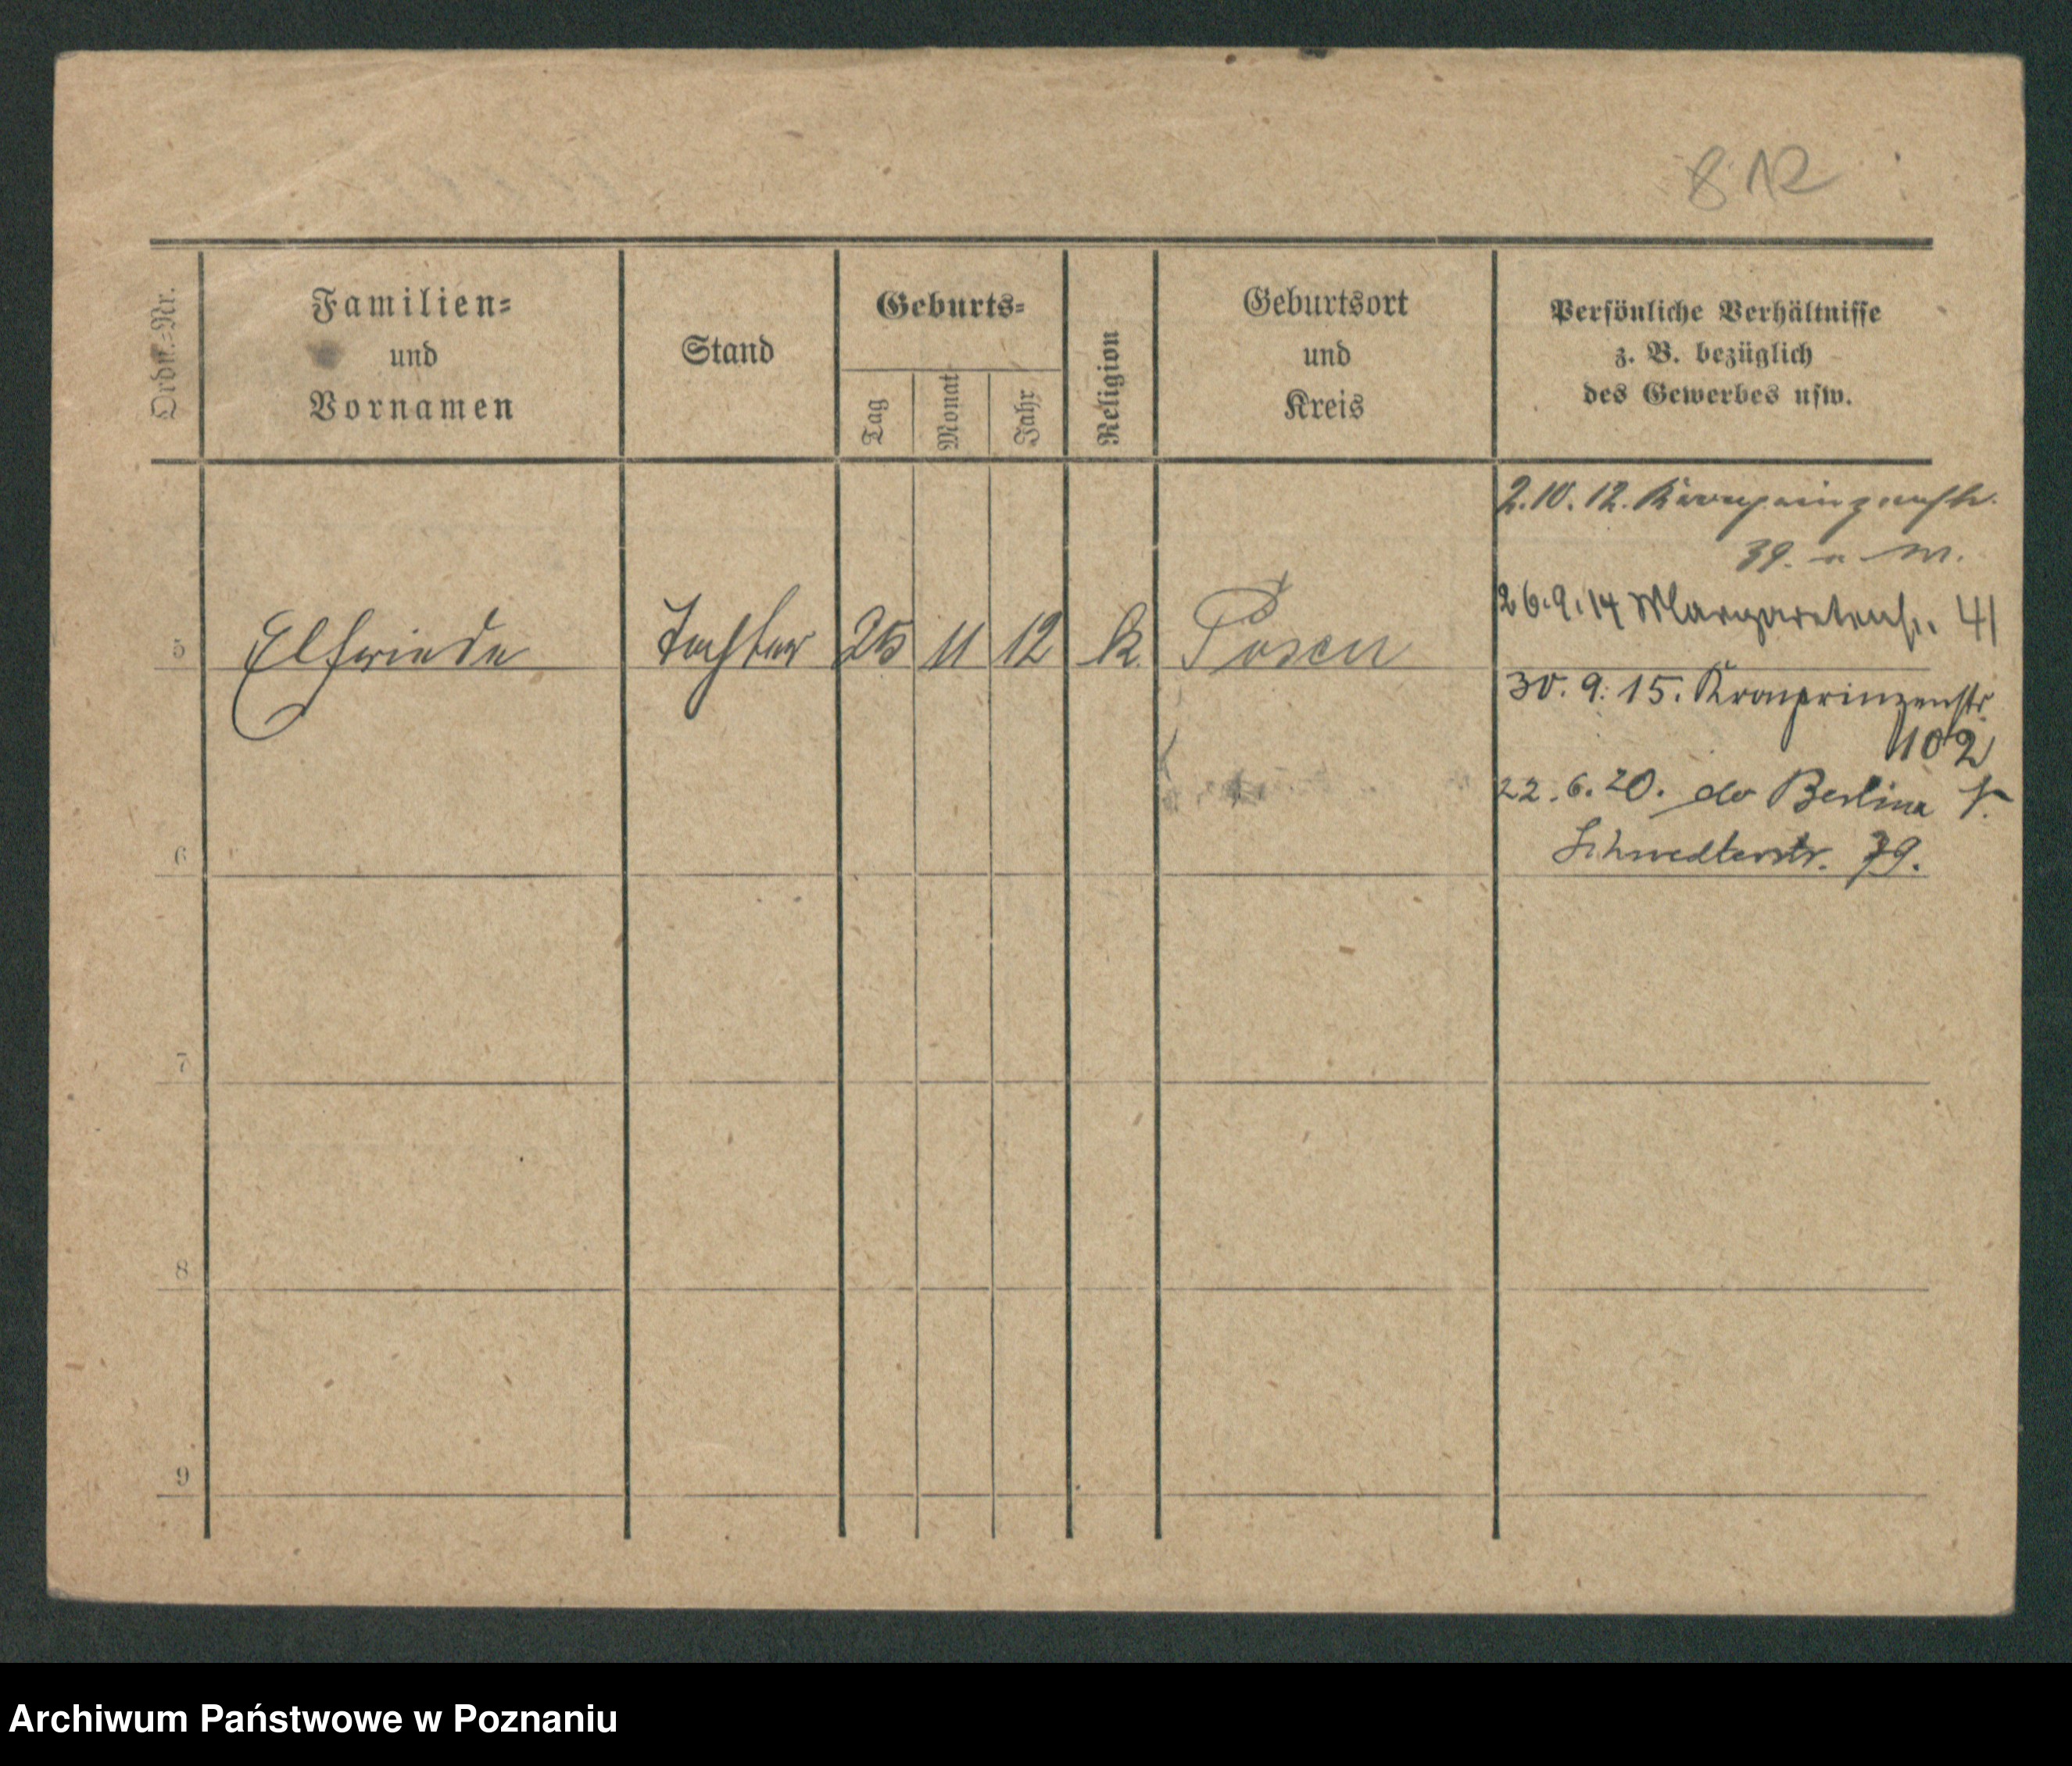 812
Ordn.-Nr.
Familien-
und
Vornamen
Stand
Geburts-
Tag
Monat
Jahr
Religion
Geburtsort
und
Kreis
Persönliche Verhältnisse
z. B. bezüglich
des Gewerbes usw.
2.10.12. Kronprinzenstr.
39.
26.9.14 Margaretenstr. 41
5 Elfriede Tochter 25 11 12 k. Posen
30.9.15. Kronprinzenstr.
102
22.6.20. do Berlina
Schwedterstr. 39.
6
7
8
9
Archiwum Państwowe w Poznaniu